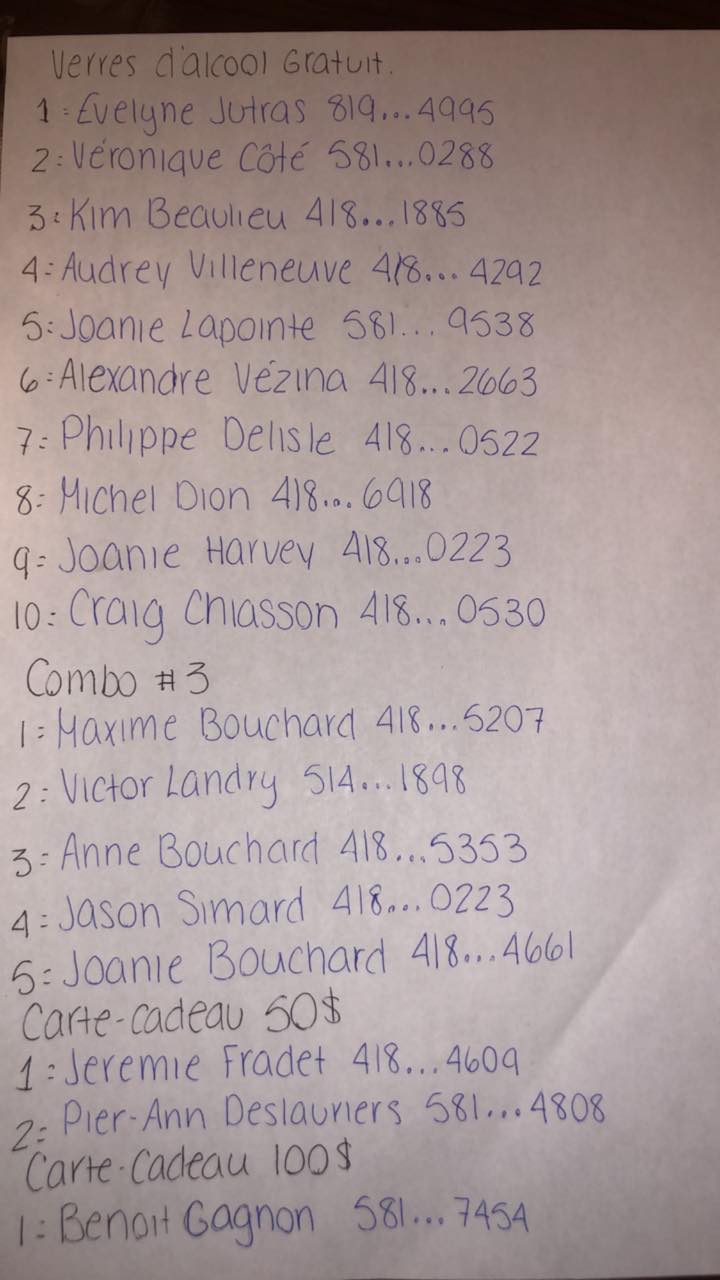 Verres d'alcool Gratuit.
1: Évelyne Jutras 819...4995
2: Véronique Côté 581...0288
3: Kim Beaulieu 418...1885
4: Audrey Villeneuve 418...4292
5: Joanie Lapointe 581...9538
6: Alexandre Vézina 418...2663
7: Philippe Delisle 418...0522
8: Michel Dion 418...6918
9: Joanie Harvey 418...0223
10: Craig Chiasson 418...0530
Combo #3
1: Maxime Bouchard 418...5207
2: Victor Landry 514...1898
3: Anne Bouchard 418...5353
4: Jason Simard 418...0223
5: Joanie Bouchard 418...4661
Carte-cadeau 50$
1: Jeremie Fradet 418...4609
2: Pier-Ann Deslauriers 581...4808
Carte-Cadeau 100$
1: Benoit Gagnon 581...7454